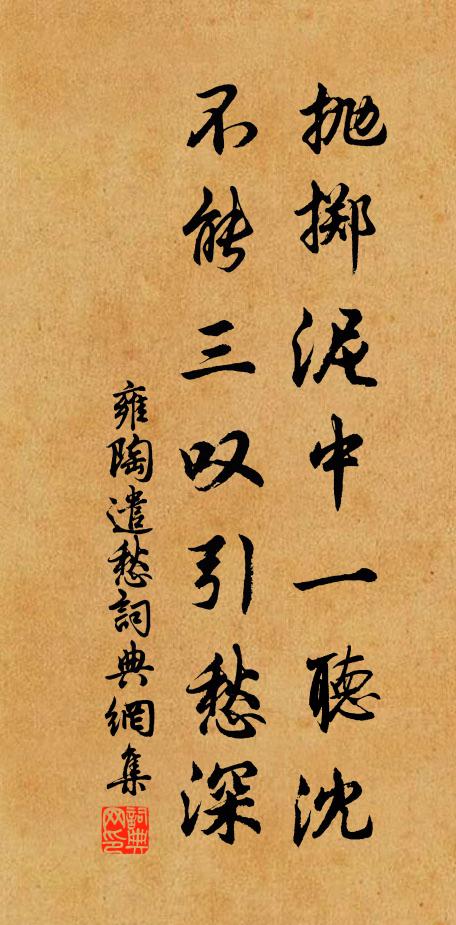 抛掷泥中一聽沈
不能三叹引愁深
雍陶遣愁詞典網集
詞典網印